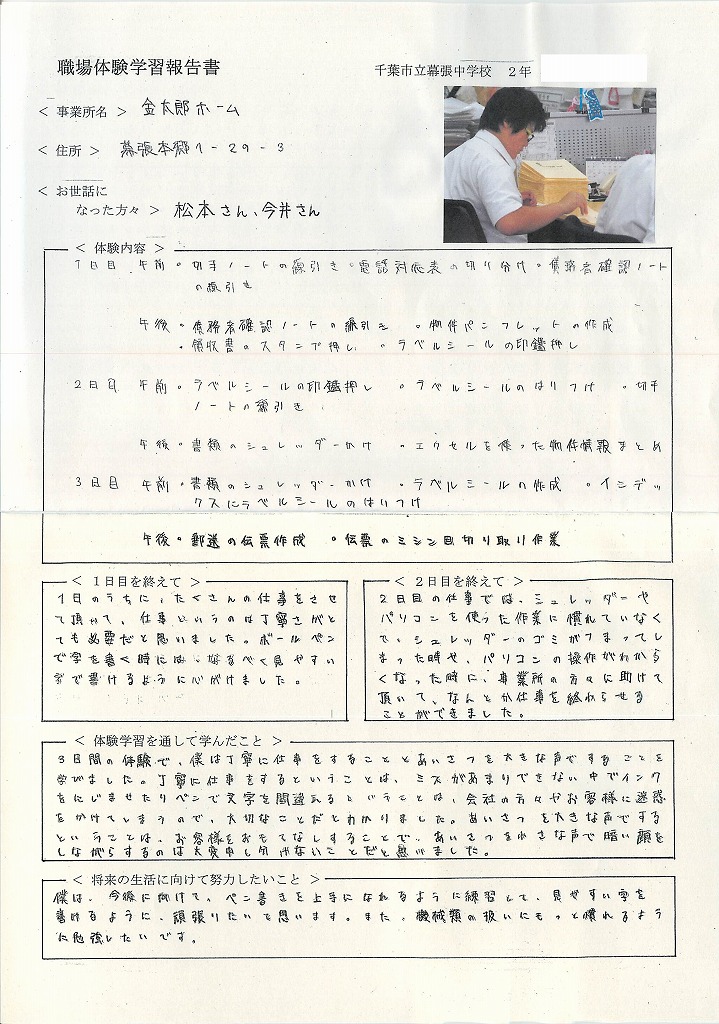 職場体験学習報告書
千葉市立幕張中学校 2年
＜ 事業所名 ＞ 金太郎ホーム
＜ 住所 ＞ 幕張本郷1-29-3
＜ お世話に
なった方々 ＞ 松本さん、今井さん
＜ 体験内容 ＞
1日目 午前 ・切手ノートの線引き ・電話対応表の切り分け ・債務者確認ノート
の線引き
午後 ・債務者確認ノートの線引き ・物件パンフレットの作成
・領収書のスタンプ押し ・ラベルシールの印鑑押し
2日目 午前 ・ラベルシールの印鑑押し ・ラベルシールのはりつけ ・切手
ノートの線引き
午後 ・書類のシュレッダーかけ ・エクセルを使った物件情報まとめ
3日目 午前 ・書類のシュレッダーかけ ・ラベルシールの作成 ・インデッ
クスにラベルシールのはりつけ
午後 ・郵送の伝票作成 ・伝票のミシン目切り取り作業
＜ 1日目を終えて ＞
1日のうちに、たくさんの仕事をさせ
て頂けて、仕事というのは丁寧さがと
ても必要だと思いました。ボールペン
で字を書く時には、なるべく見やすい
字で書けるように心がけました。
＜ 2日目を終えて ＞
2日目の仕事では、シュレッダーや
パソコンを使った作業に慣れていなく
て、シュレッダーのゴミがつまってし
まった時や、パソコンの操作がわから
くなった時に、事業所の方々に助けて
頂いて、なんとか仕事を終わらせる
ことができました。
＜ 体験学習を通して学んだこと ＞
3日間の体験で、僕は丁寧に仕事をすることとあいさつを大きな声ですることを
学びました。丁寧に仕事をするということは、ミスがあまりできない中でインク
をにじませたりペンで文字を間違えるということは、会社の方々やお客様に迷惑
をかけてしまうので、大切なことだとわかりました。あいさつを大きな声でする
ということは、お客様をおもてなしすることで、あいさつを小さな声で暗い顔を
しながらするのは大変申し分けないことだと思いました。
＜ 将来の生活に向けて努力したいこと ＞
僕は、今後に向けて、ペン書きを上手になれるように練習して、見やすい字を
書けるように、頑張りたいと思います。また、機械類の扱いにもっと慣れるよう
に勉強したいです。